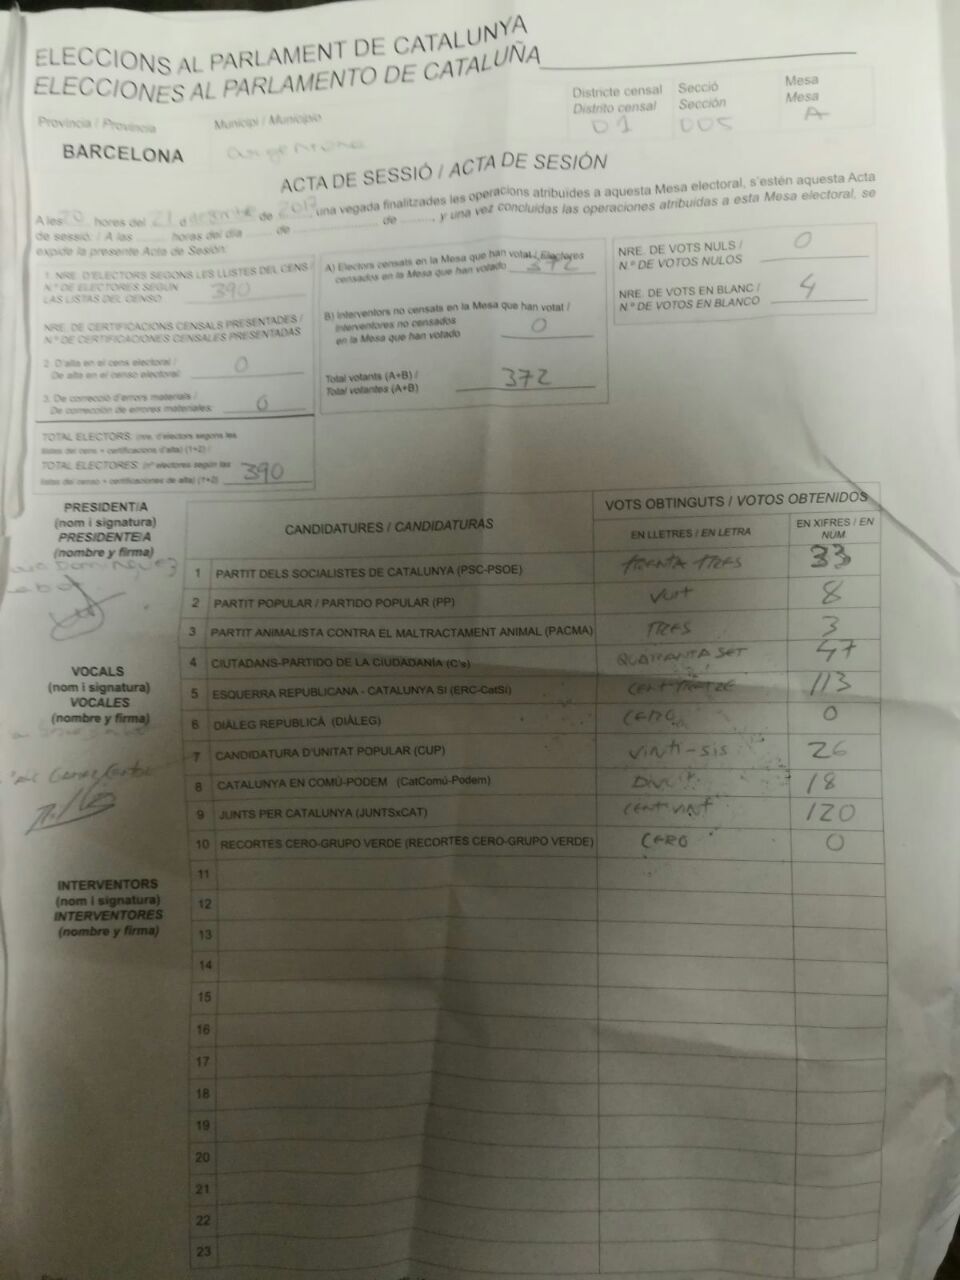 ELECCIONS AL PARLAMENT DE CATALUNYA
ELECCIONES AL PARLAMENTO DE CATALUÑA
Districte censal
Distrito censal
01
Secció
Sección
005
Mesa
Mesa
A
Província / Provincia
BARCELONA
Municipi / Municipio
argentona
ACTA DE SESSIÓ / ACTA DE SESIÓN
A les 20 hores del 21 d desembre de 2017 una vegada finalitzades les operacions atribuïdes a aquesta Mesa electoral, s'estén aquesta Acta
de sessió: / A las ........ horas del día ..... de ..................... de ........, y una vez concluidas las operaciones atribuidas a esta Mesa electoral, se
expide la presente Acta de Sesión:
1. NRE. D'ELECTORS SEGONS LES LLISTES DEL CENS /
N.º DE ELECTORES SEGÚN
LAS LISTAS DEL CENSO 390
NRE. DE CERTIFICACIONS CENSALS PRESENTADES /
N.º DE CERTIFICACIONES CENSALES PRESENTADAS
2. D'alta en el cens electoral /
De alta en el censo electoral: 0
3. De correcció d'errors materials /
De corrección de errores materiales: 0
TOTAL ELECTORS: (nre. d'electors segons les
llistes del cens + certificacions d'alta) (1+2) /
TOTAL ELECTORES: (nº electores según las
listas del censo + certificaciones de alta) (1+2) 390
A) Electors censats en la Mesa que han votat / Electores
censados en la Mesa que han votado 372
B) Interventors no censats en la Mesa que han votat /
Interventores no censados
en la Mesa que han votado 0
Total votants (A+B) /
Total votantes (A+B) 372
NRE. DE VOTS NULS /
N.º DE VOTOS NULOS 0
NRE. DE VOTS EN BLANC /
N.º DE VOTOS EN BLANCO 4
PRESIDENT/A
(nom i signatura)
PRESIDENTE/A
(nombre y firma)
VOCALS
(nom i signatura)
VOCALES
(nombre y firma)
INTERVENTORS
(nom i signatura)
INTERVENTORES
(nombre y firma)
CANDIDATURES / CANDIDATURAS
VOTS OBTINGUTS / VOTOS OBTENIDOS
EN LLETRES / EN LETRA
EN XIFRES / EN
NUM.
1 PARTIT DELS SOCIALISTES DE CATALUNYA (PSC-PSOE) TRENTA TRES 33
2 PARTIT POPULAR / PARTIDO POPULAR (PP) VUIT 8
3 PARTIT ANIMALISTA CONTRA EL MALTRACTAMENT ANIMAL (PACMA) TRES 3
4 CIUTADANS-PARTIDO DE LA CIUDADANÍA (C's) QUARANTA SET 47
5 ESQUERRA REPUBLICANA - CATALUNYA SI (ERC-CatSí) CENT TRETZE 113
6 DIÀLEG REPUBLICÀ (DIÀLEG) CERO 0
7 CANDIDATURA D'UNITAT POPULAR (CUP) VINTI-SIS 26
8 CATALUNYA EN COMÚ-PODEM (CatComú-Podem) DIVUIT 18
9 JUNTS PER CATALUNYA (JUNTSxCAT) CENTIVINT 120
10 RECORTES CERO-GRUPO VERDE (RECORTES CERO-GRUPO VERDE) CERO 0
11
12
13
14
15
16
17
18
19
20
21
22
23